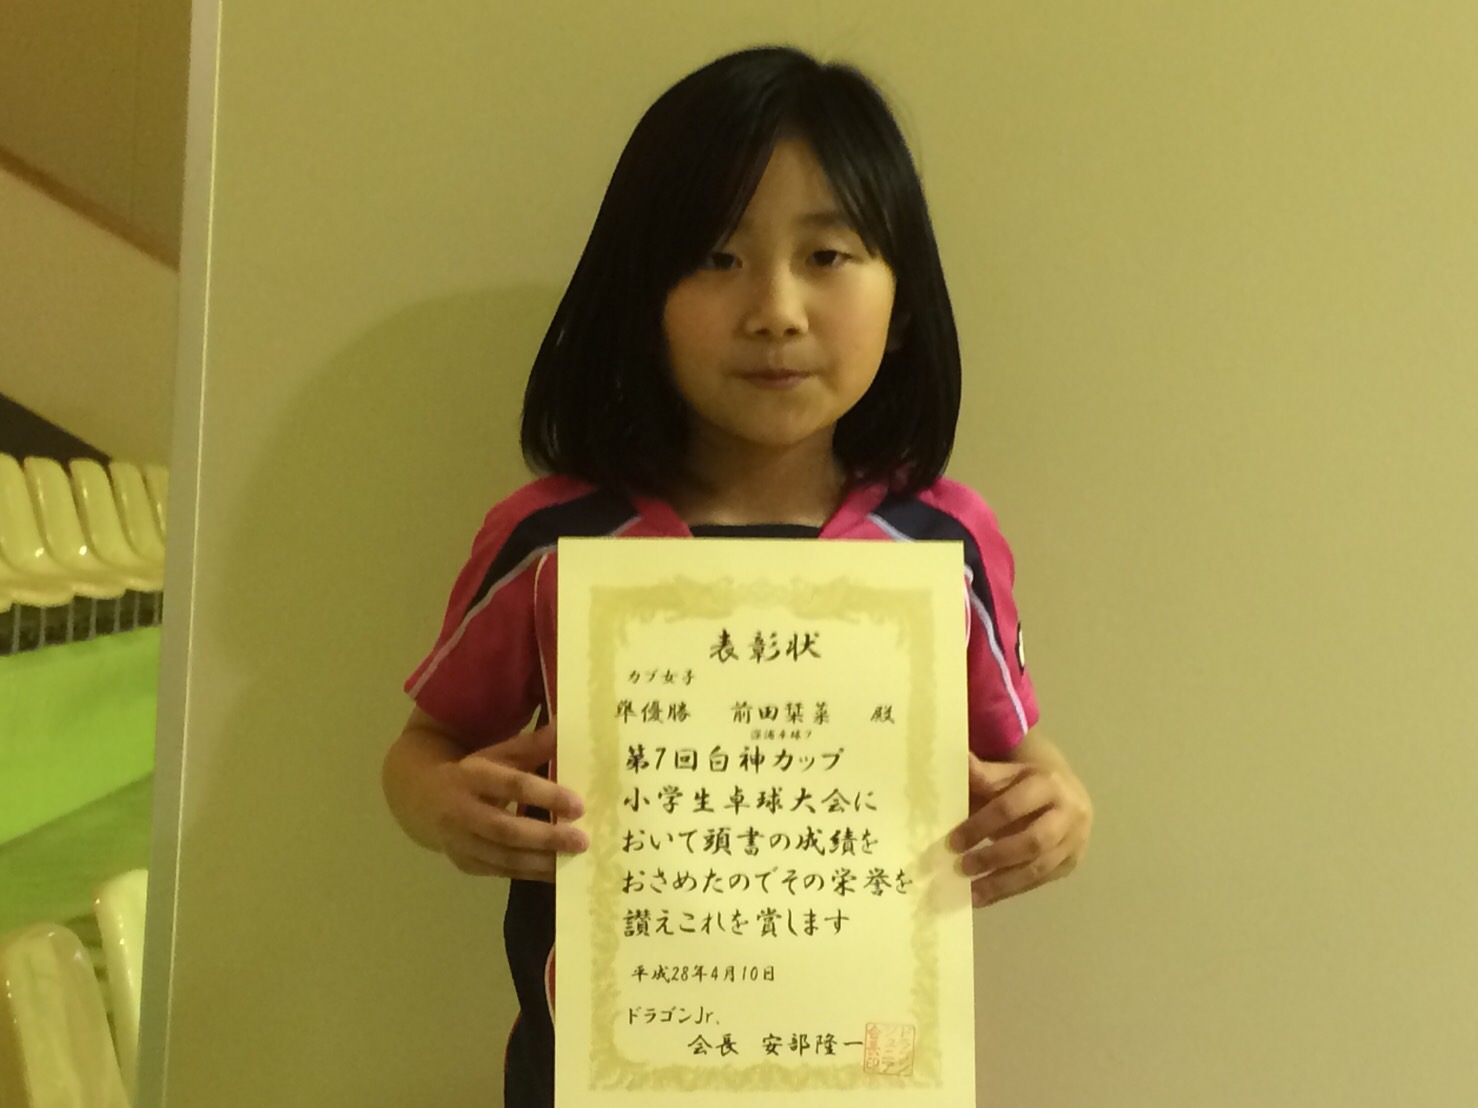 表彰状
カブ女子
準優勝 前田栞菜 殿
深浦卓球ク
第7回白神カップ
小学生卓球大会に
おいて頭書の成績を
おさめたのでその栄誉を
讃えこれを賞します
平成28年4月10日
ドラゴンJr.
会長 安部隆一